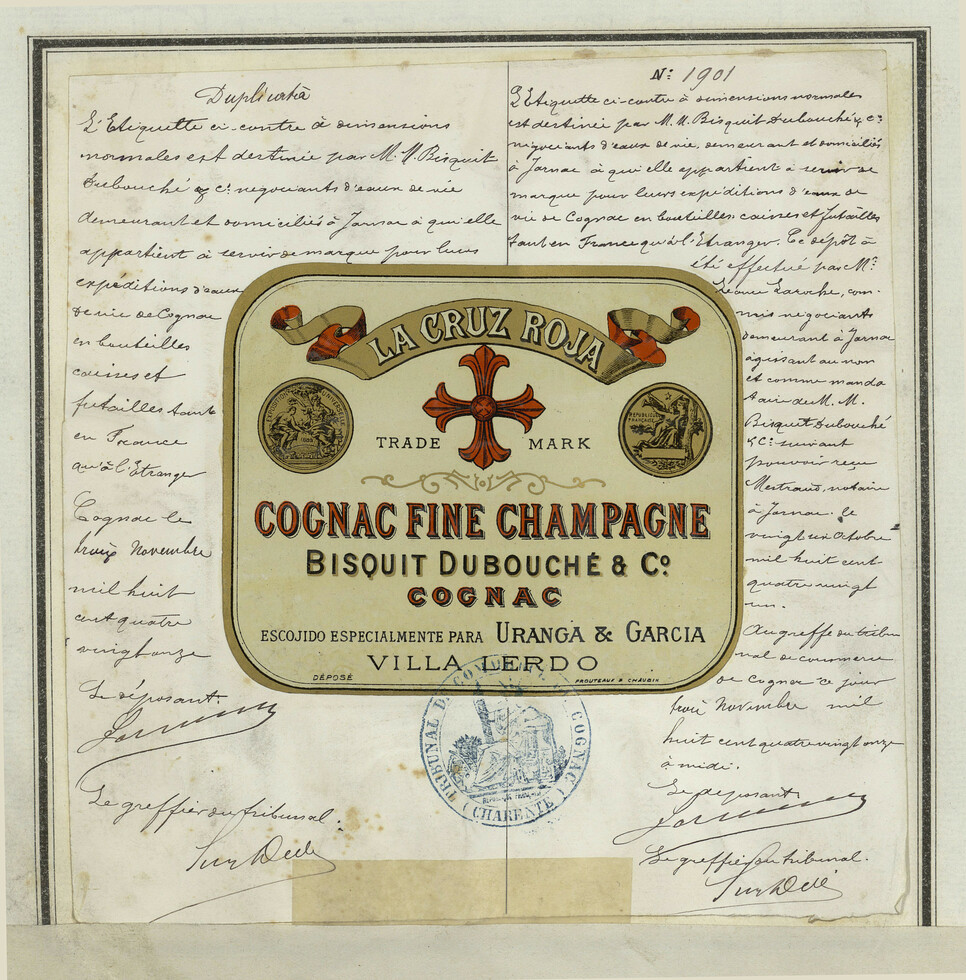 Duplicata
L'Etiquette ci-contre à dimensions
normales est destinée par M. M. Bisquit
Dubouché & Cie négociants d'eaux de vie
demeurant et domiciliés à Jarnac à qui elle
appartient à servir de marque pour leurs
expéditions d'eaux
de vie de Cognac
en bouteilles
caisses et
futailles tant
en France
qu'à l'Etranger
Cognac le
trois Novembre
mil huit
cent quatre
vingt onze
Le déposant.
Le greffier du tribunal.
No: 1901
L'Etiquette ci-contre à dimensions normales
est destinée par M. M. Bisquit Dubouché & Cie
négociants d'eaux de vie, demeurant et domiciliés
à Jarnac à qui elle appartient à servir de
marque pour leurs expéditions d'eaux de
vie de Cognac en bouteilles caisses et futailles
tant en France qu'à l'Etranger. Ce dépôt a
été effectué par Mr.
Laroche, com-
mis négociants
demeurant à Jarnac
agissant au nom
et comme manda
taire de M. M.
Bisquit Dubouché
& Cie suivant
pouvoir reçu
Mestraud, notaire
à Jarnac. le
vingt un Octobre
mil huit cent
quatre vingt
un.
Au greffe du tribu
nal de commerce
de Cognac ce jour
trois Novembre mil
huit cent quatre vingt onze
à midi.
Le déposant
Le greffier du tribunal.
LA CRUZ ROJA
EXPOSITION UNIVERSELLE
REPUBLIQUE
FRANÇAISE
TRADE MARK
COGNAC FINE CHAMPAGNE
BISQUIT DUBOUCHÉ & Co
COGNAC
ESCOJIDO ESPECIALMENTE PARA URANGA & GARCIA
VILLA LERDO
DÉPOSÉ
PROUTEAUX & CHAUBIN
TRIBUNAL DE COMMERCE DE COGNAC
REPUBLIQUE FRANÇAISE
(CHARENTE)